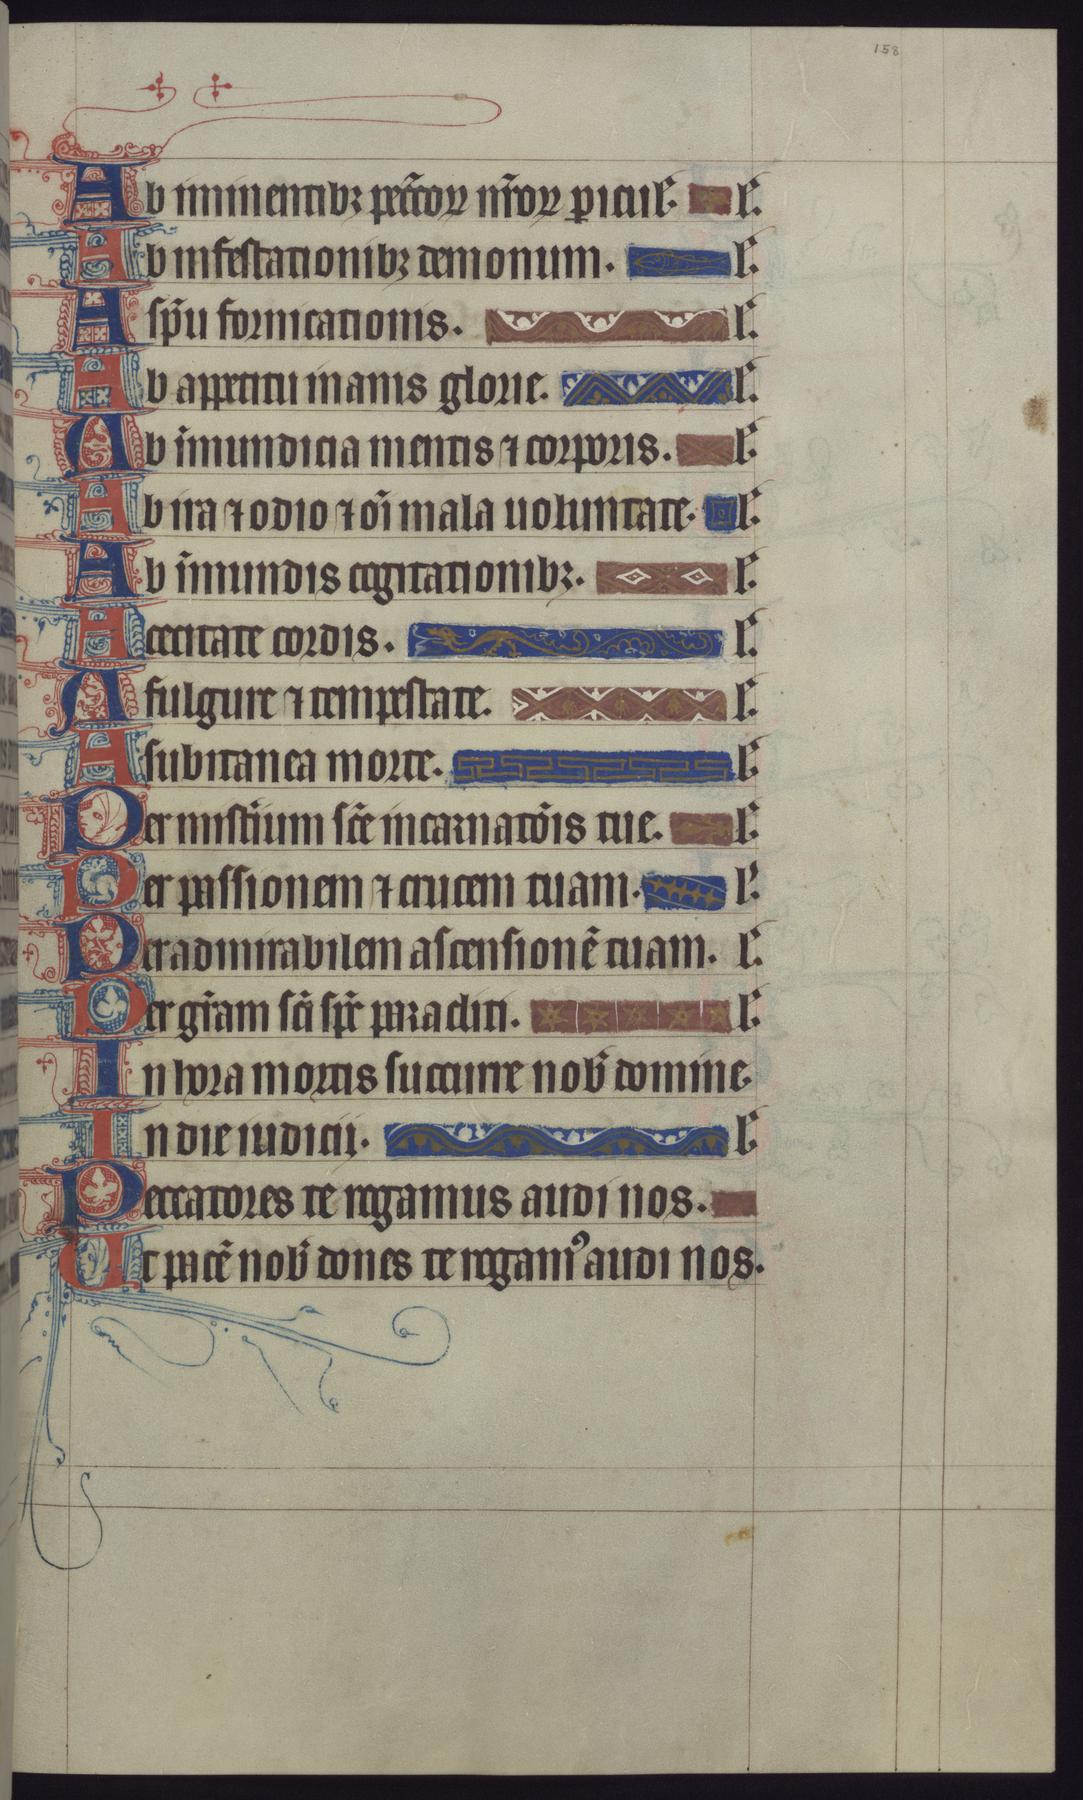 158
Ab iminentibꝫ pccōꝝ nr̄oꝝ ꝑicul'. l'.
Ab infestationibꝫ demonum. l'.
A sp̄u fornicationis. l'.
Ab appetitu inanis glorie. l'.
Ab īmundicia mentis ⁊ corporis. l'.
Ab ira ⁊ odio ⁊ oī mala uoluntate. l'.
Ab īmundis cogitationibꝫ. l'.
A cecitate cordis. l'.
A fulgure ⁊ tempestate. l'.
A subitanea morte. l'.
Per mist̄ium sc̄e incarnatōis tue. l'.
Per passionem ⁊ crucem tuam. l'.
Per admirabilem ascensionē tuam. l'.
Per gr̄am sc̄i sp̄c paracliti. l'.
In hora mortis succurre nob̄ domine
In die iudicii. l'
Peccatores te rogamus audi nos.
Ut pacē nob̄ dones te rogamꝰ audi nos.